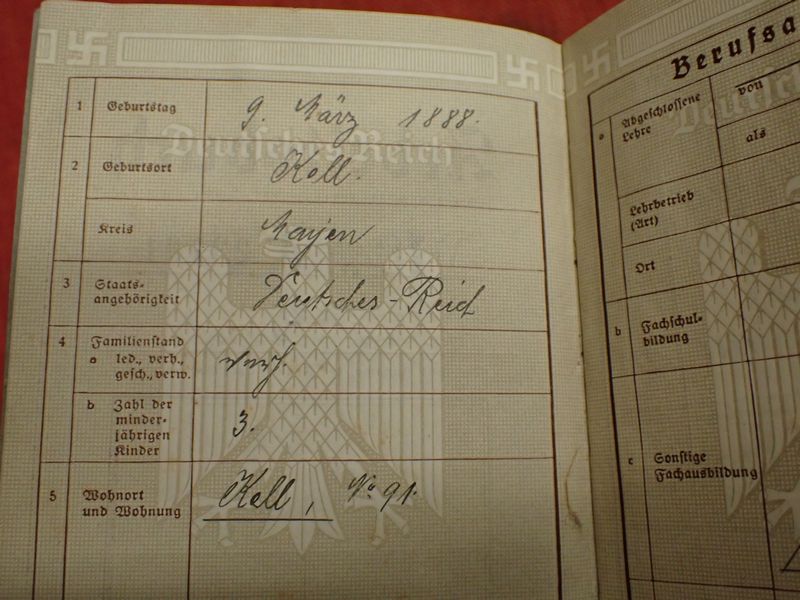 1 Geburtstag 9. März 1888.
Deutsches Reich
2 Geburtsort Kall.
Kreis Mayen
3 Staats-
angehörigkeit Deutsches-Reich
4 Familienstand
a led., verh.,
gesch., verw. verh.
b Zahl der
minder-
jährigen
Kinder 3.
5 Wohnort
und Wohnung Kall, No 91.
Berufsa
a Abgeschlossene
Lehre
von
als
Lehrbetrieb
(Art)
Ort
b Fachschul-
bildung
c Sonstige
Fachausbildung